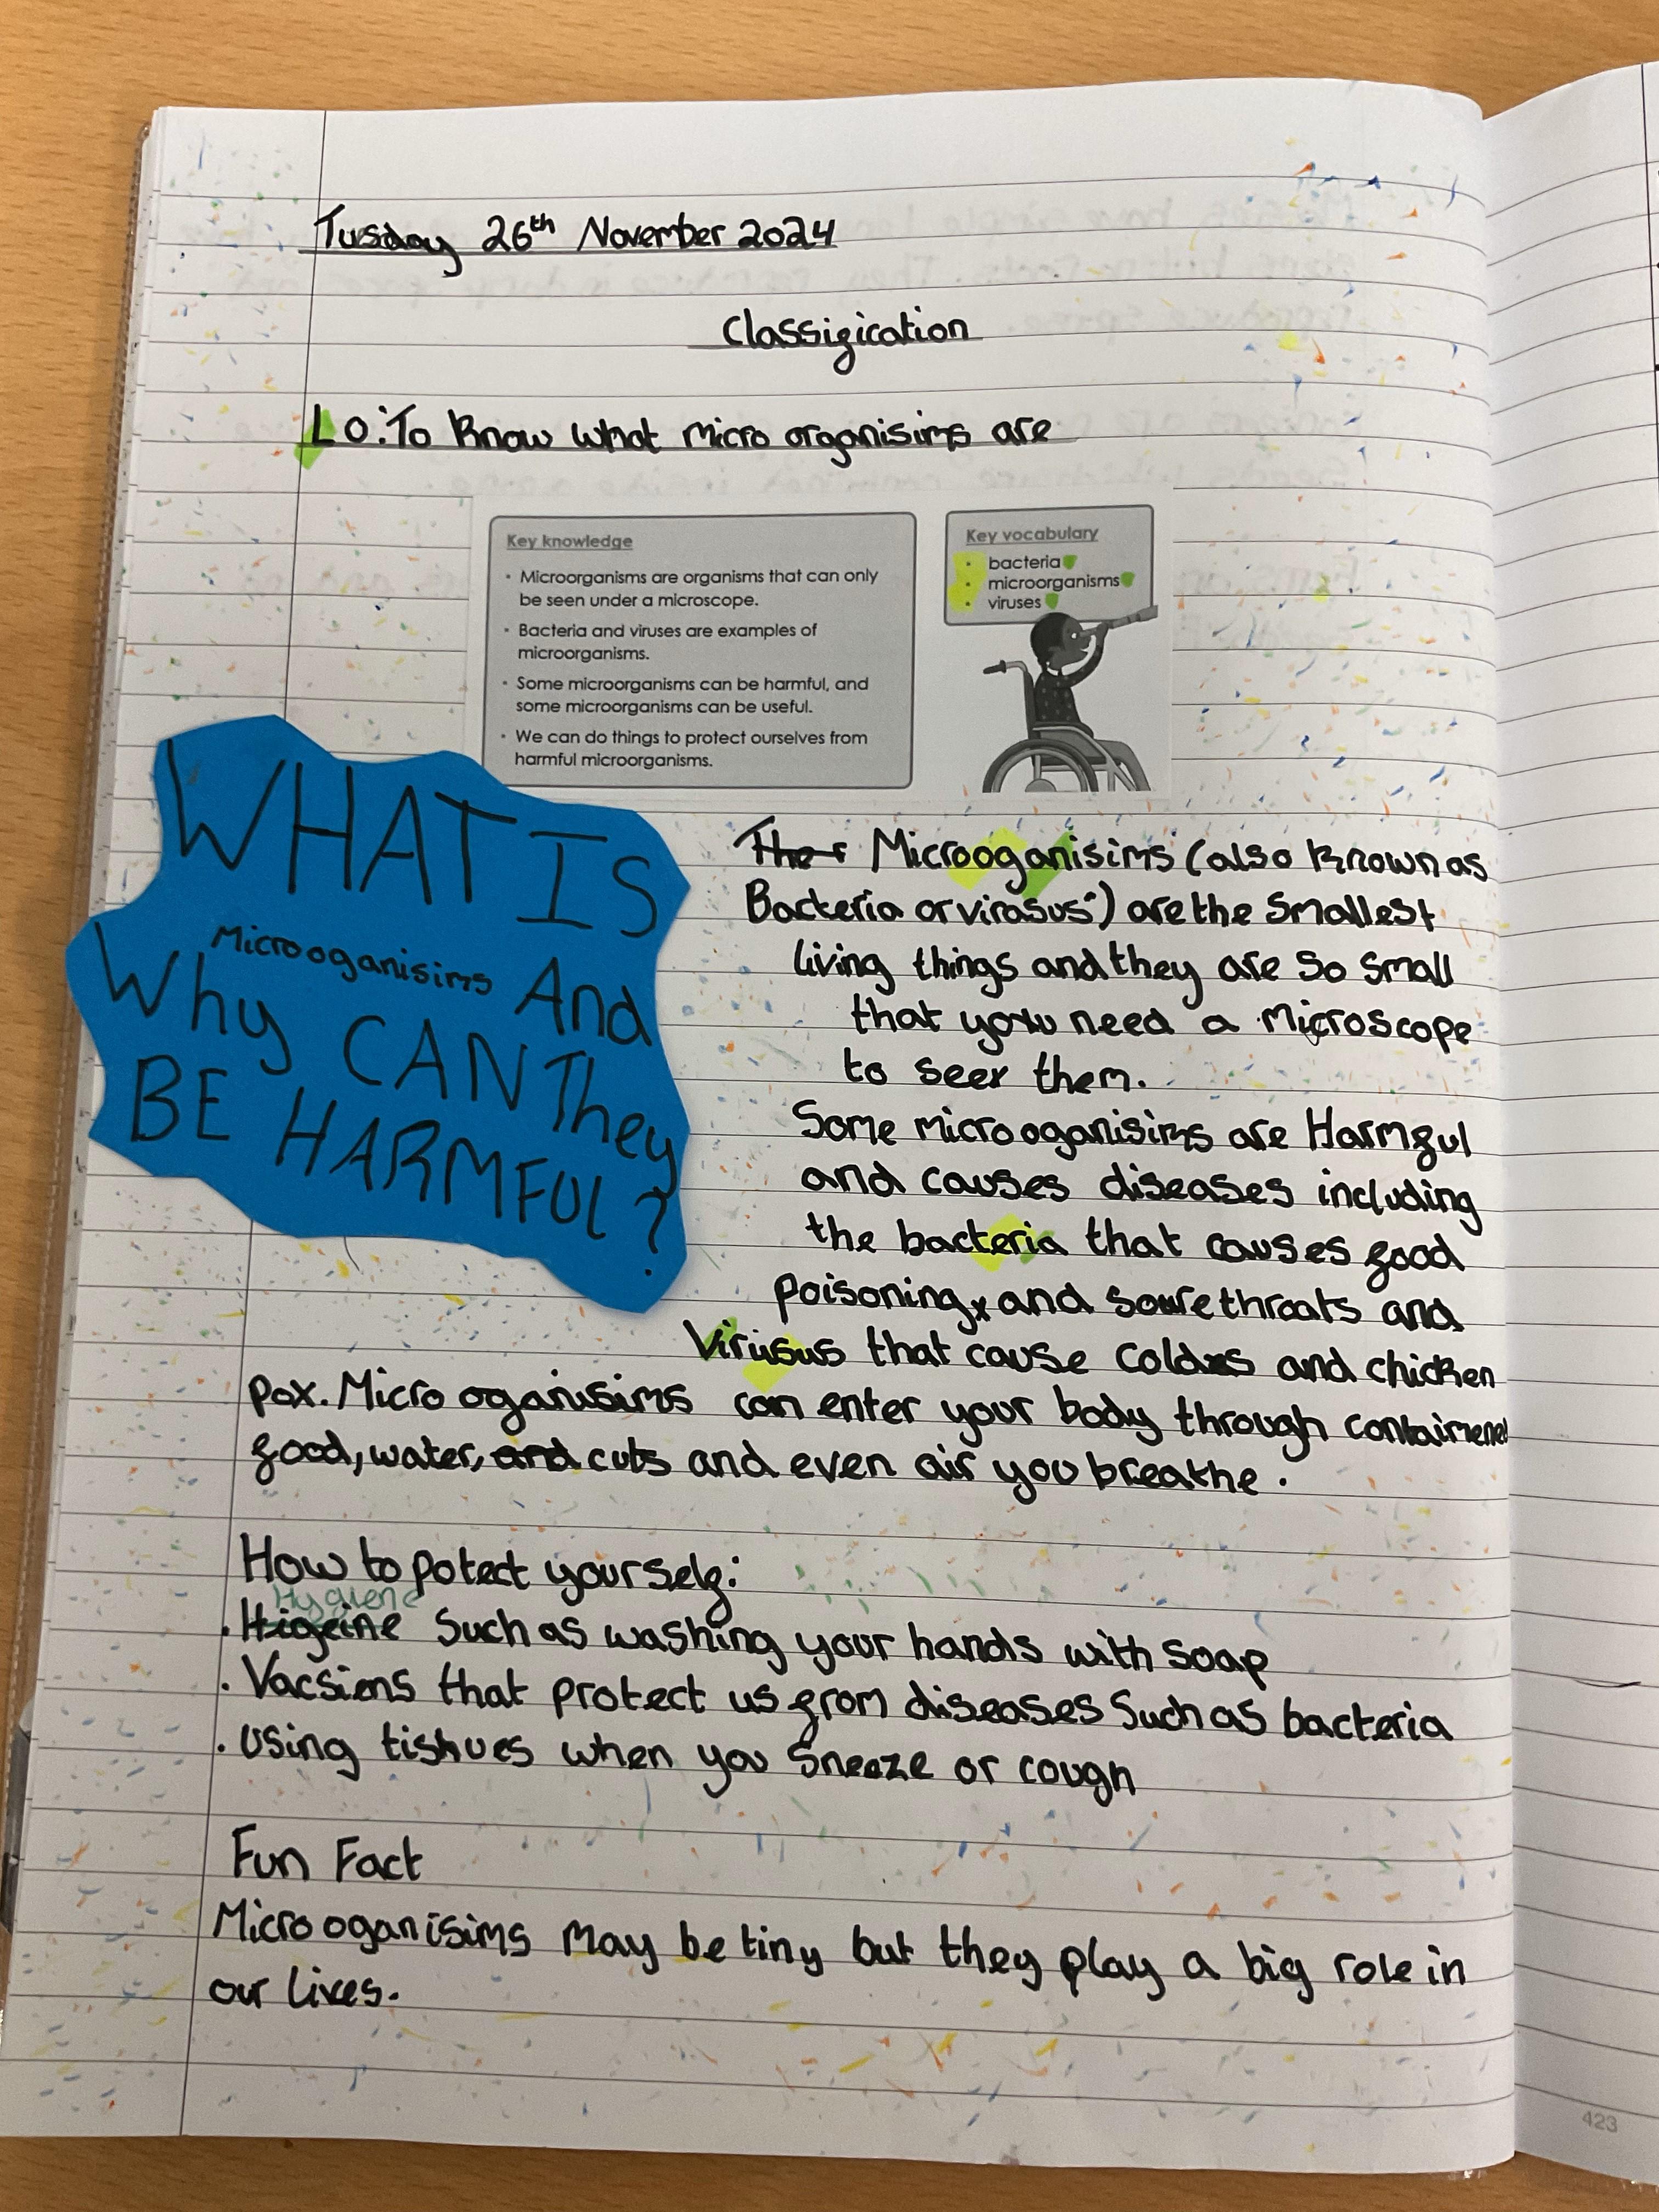 Tuesday 26th November 2024
Classification
LO: To Know what micro organisims are
Key knowledge
• Microorganisms are organisms that can only
be seen under a microscope.
• Bacteria and viruses are examples of
microorganisms.
• Some microorganisms can be harmful, and
some microorganisms can be useful.
• We can do things to protect ourselves from
harmful microorganisms.
Key vocabulary
• bacteria
• microorganisms
• viruses
WHAT IS
Microoganisims And
Why CAN They
BE HARMFUL?
Microoganisims (also known as
Bacteria or virasus) are the smallest
living things and they are so small
that you need a microscope
to see them.
Some microoganisims are Harmful
and causes diseases including
the bacteria that causes food
poisoning, and soure throats and
Virusus that cause colds and chicken
pox. Micro oganisims can enter your body through
food, water, and cuts and even air you breathe.
How to potect yourself:
Hygiene
. Higeine Such as washing your hands with soap
. Vacsiens that protect us from diseases Such as bacteria
. Using tishues when you Sneeze or cough
Fun Fact
Microoganisims may be tiny but they play a big role in
our lives.
423